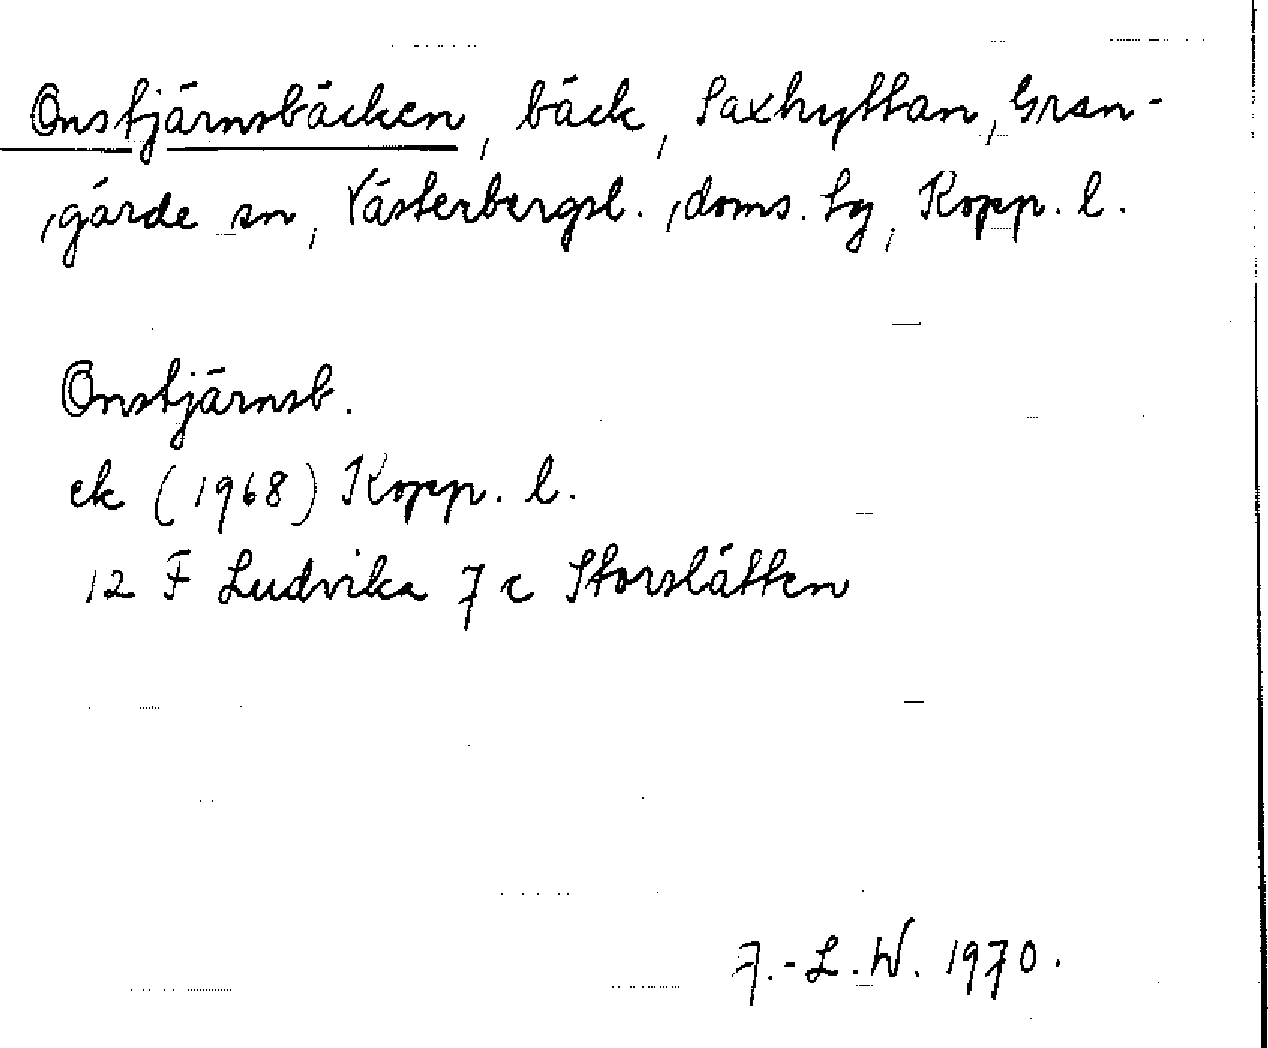 Onstjärnsbäcken, bäck, Saxhyttan, Gran-
gärde sn, Västerbergsl. doms. tg, Kopp. l.
Onstjärnsb.
ek (1968) Kopp. l.
12 F Ludvika 7 c Storslätten
J.-L. W. 1970.